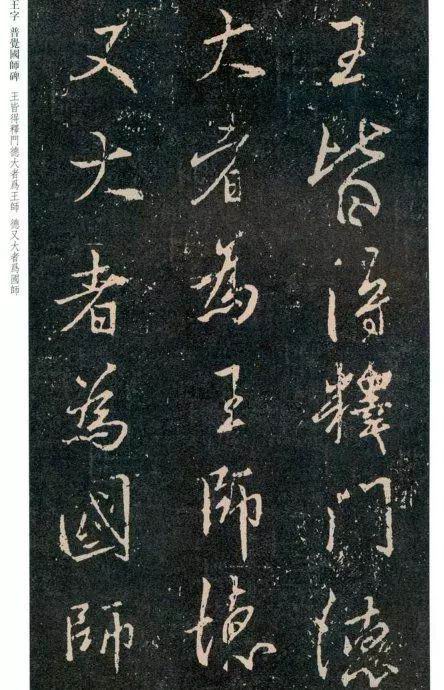 王字 普覺國師碑 王皆得釋門德大者爲王師 德又大者爲國師
王皆得釋門德
大者為王師德
又大者為國師